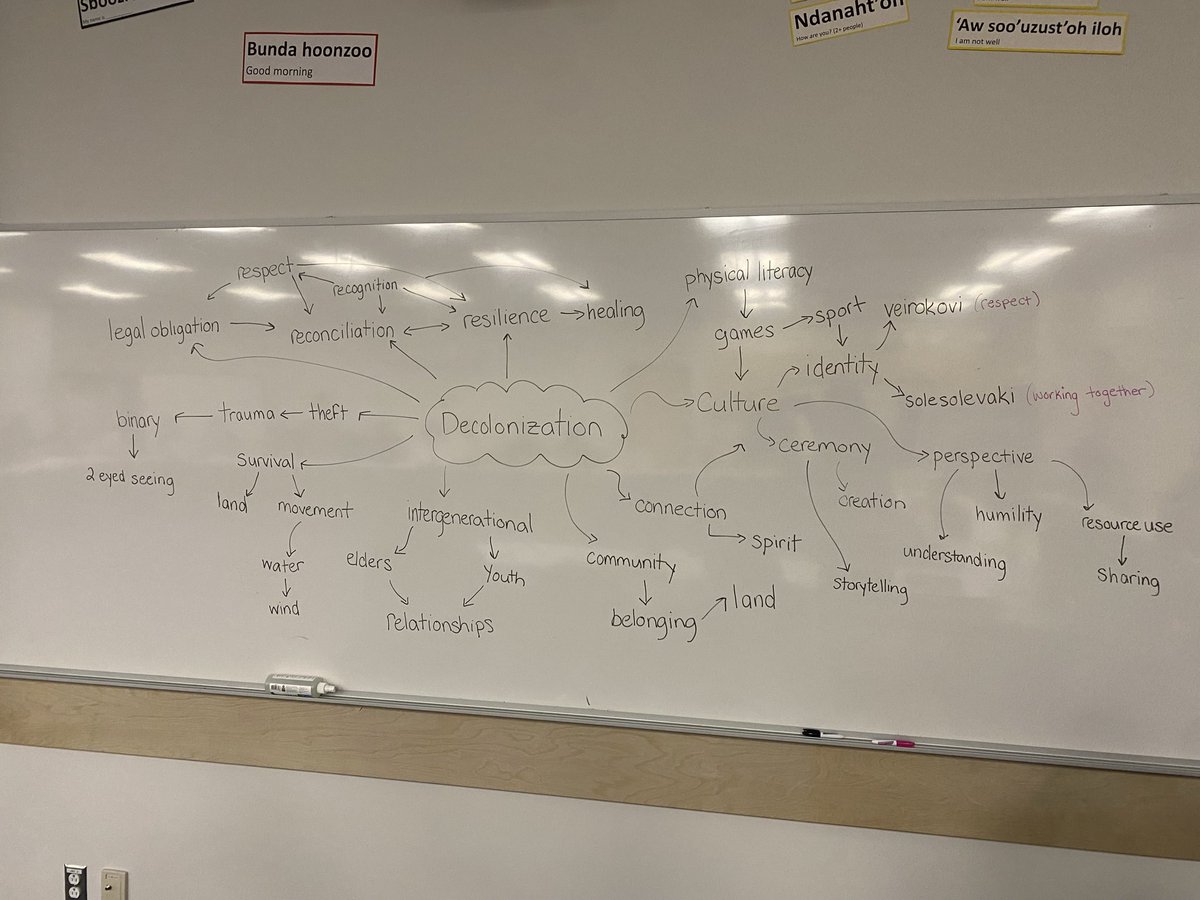 My name is
Bunda hoonzoo
Good morning
Ndanaht'oh
How are you? (2+ people)
'Aw soo'uzust'oh iloh
I am not well
respect
recognition
legal obligation
reconciliation
resilience
healing
physical literacy
games
sport
veirokovi (respect)
identity
solesolevaki (working together)
Culture
Decolonization
binary
trauma
theft
2 eyed seeing
Survival
land
movement
water
wind
intergenerational
elders
Youth
relationships
community
belonging
land
connection
spirit
ceremony
creation
storytelling
perspective
humility
understanding
resource use
sharing